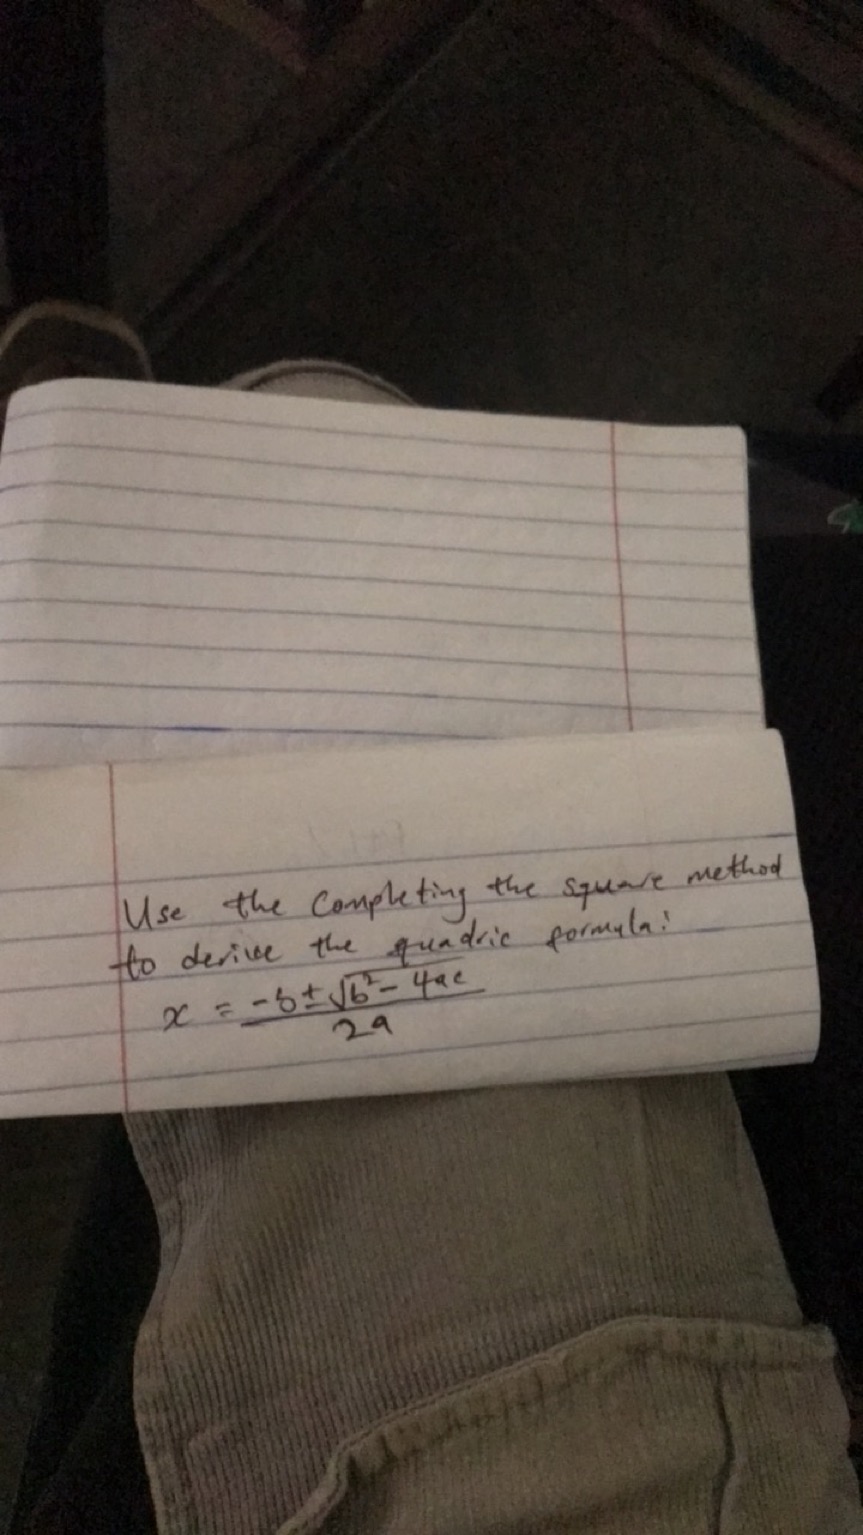 Use the Completing the square method
to derive the quadric formula:
x = -b ± √b² - 4ac
2a